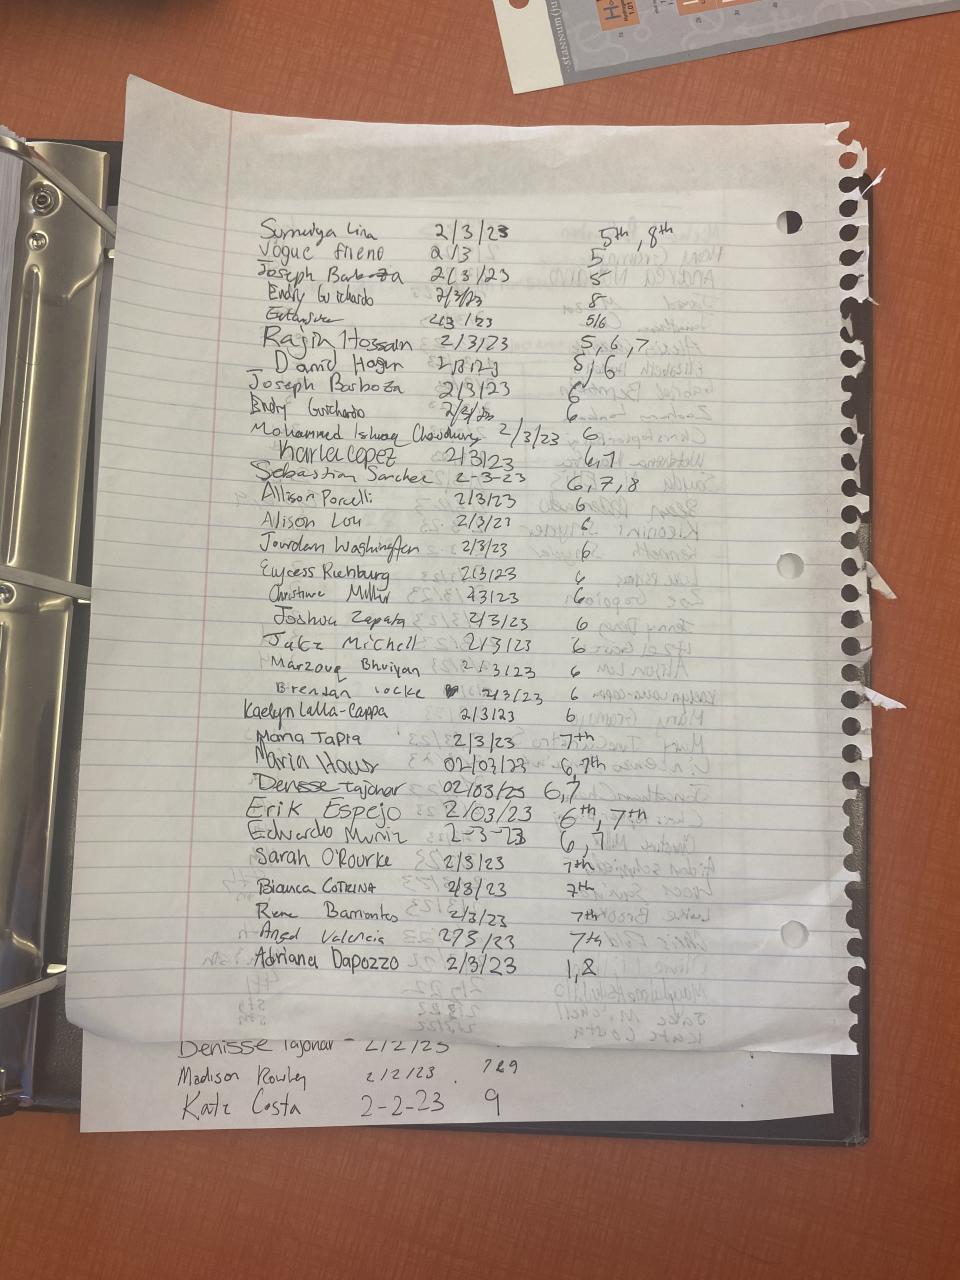 Lina 2/3/23 5th, 8th
Vogue 2/3/ 5
Joseph Barboza 2/3/23 5
Endry Guichardo 2/3/23 8
2/3/23 5/6
Rajin Hossain 2/3/23 5, 6, 7
David Hagen 2/3/23 5, 6
Joseph Barboza 2/3/23 6
Endry Guichardo 2/3/23 6
Mohammed Ishaq Chowdhury 2/3/23 6
Karla Lopez 2/3/23 6,7
Sebastian Sanchez 2-3-23 6, 7, 8
Allison Porcelli 2/3/23 6
Alison Lou 2/3/23 6
Jourdan Washington 2/3/23 6
Elycess Richburg 2/3/23 6
Christine Miller 2/3/23 6
Joshua Zapata 2/3/23 6
Jake Mitchell 2/3/23 6
Marzouq Bhuiyan 2/3/23 6
Brendan Locke 2/3/23 6
Kaelyn Lalla-Cappa 2/3/23 6
Maria Tapia 2/3/23 7th
Marin 02/03/23 6,7th
Denisse Tajonar 02/03/23 6,7
Erik Espejo 2/03/23 6th, 7th
Edwardo Muñiz 2-3-23 6,7
Sarah O'Rourke 2/3/23 7th
Bianca COTRINA 2/3/23 7th
Rene Barrientos 2/3/23 7th
Angel Valencia 2/3/23 7th
Adriana Dapozzo 2/3/23 1,8
Denisse Tajonar - 2/2/23
Madison Rowley 2/2/23
Kate Costa 2-2-23 9